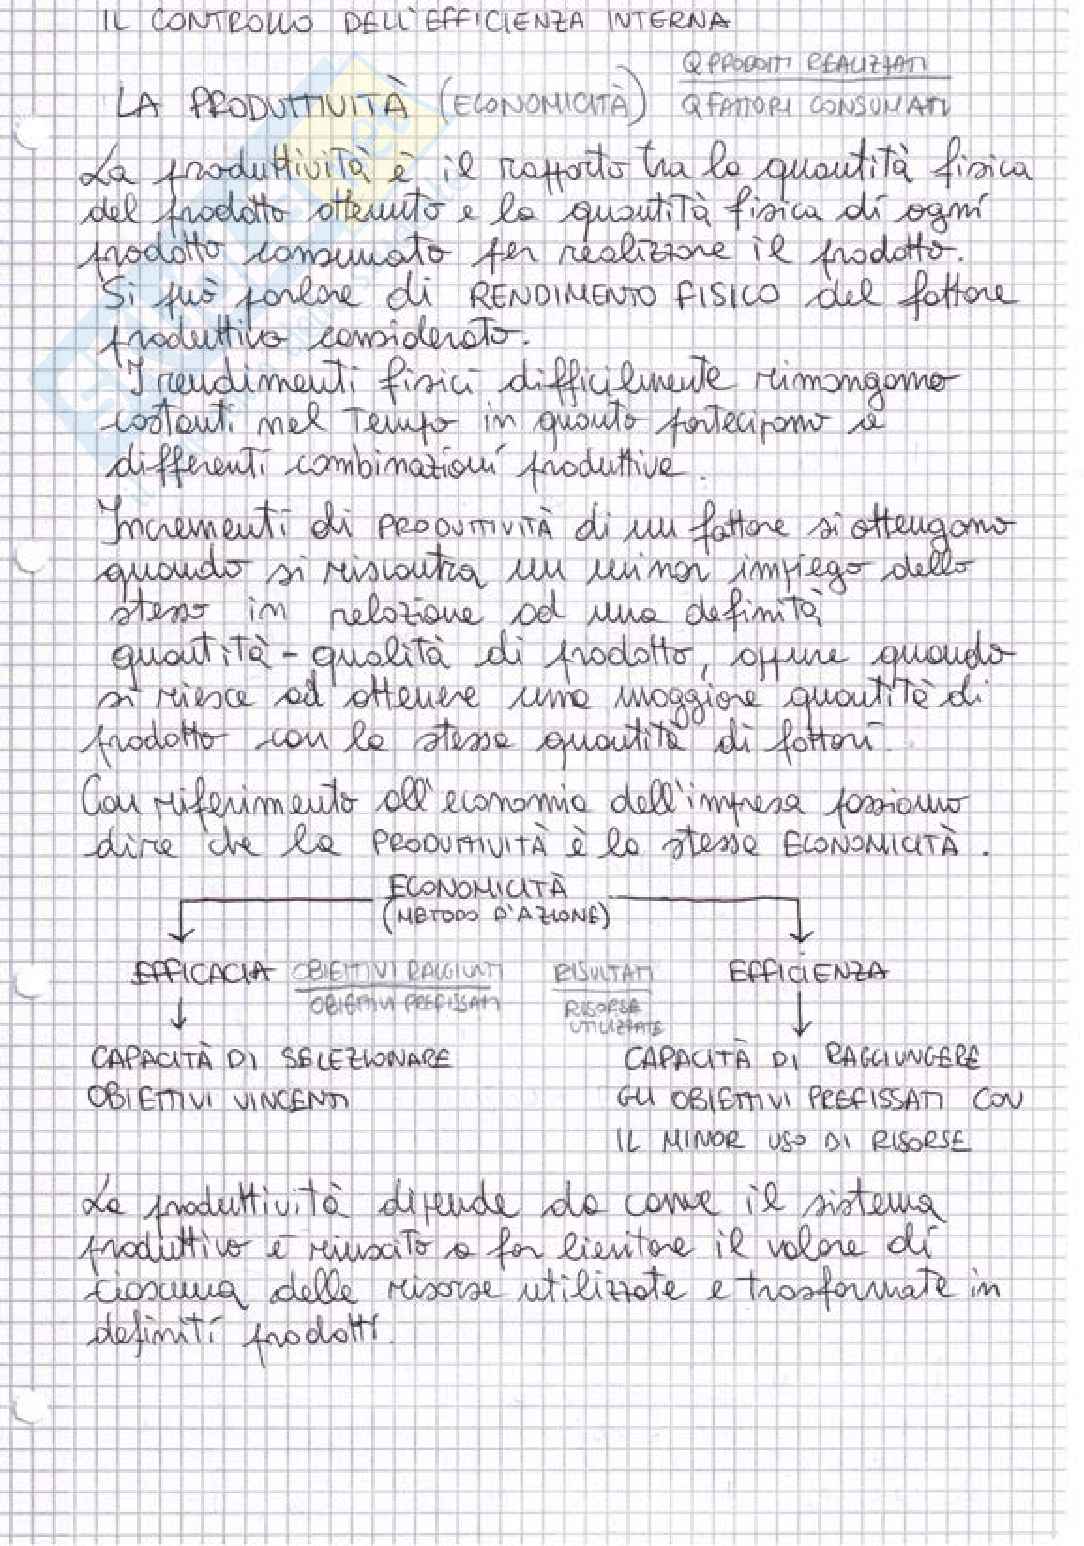 IL CONTROLLO DELL'EFFICIENZA INTERNA
LA PRODUTTIVITÀ (ECONOMICITÀ) Q PRODOTTI REALIZZATI
Q FATTORI CONSUMATI
La produttività è il rapporto tra la quantità fisica
del prodotto ottenuto e la quantità fisica di ogni
prodotto consumato per realizzare il prodotto.
Si può parlare di RENDIMENTO FISICO del fattore
produttivo considerato.
I rendimenti fisici difficilmente rimangono
costanti nel tempo in quanto partecipano a
differenti combinazioni produttive.
Incrementi di PRODUTTIVITÀ di un fattore si ottengono
quando si riscontra un minor impiego dello
stesso in relazione ad una definita
quantità-qualità di prodotto, oppure quando
si riesce ad ottenere una maggiore quantità di
prodotto con la stessa quantità di fattori.
Con riferimento all'economia dell'impresa possiamo
dire che la PRODUTTIVITÀ è la stessa ECONOMICITÀ.
ECONOMICITÀ
(METODO D'AZIONE)
EFFICACIA OBIETTIVI RAGGIUNTI RISULTATI EFFICIENZA
OBIETTIVI PREFISSATI RISORSE
UTILIZZATE
CAPACITÀ DI SELEZIONARE CAPACITÀ DI RAGGIUNGERE
OBIETTIVI VINCENTI GLI OBIETTIVI PREFISSATI CON
IL MINOR USO DI RISORSE
La produttività dipende da come il sistema
produttivo è riuscito a far lievitare il valore di
ciascuna delle risorse utilizzate e trasformate in
definiti prodotti.